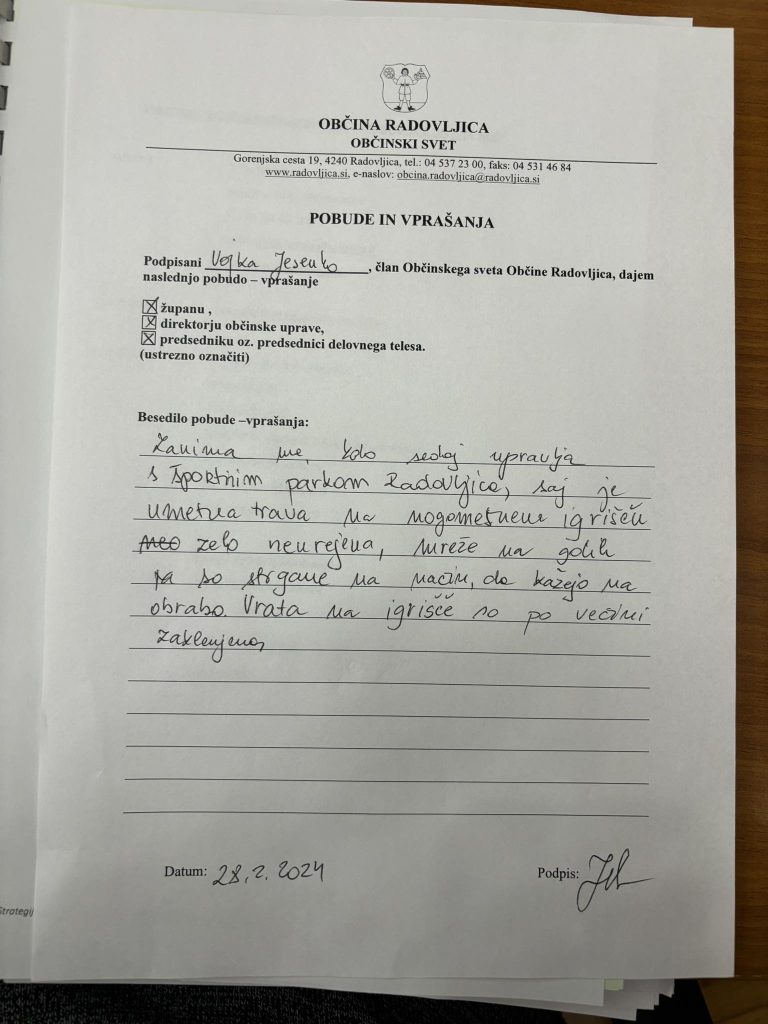 OBČINA RADOVLJICA
OBČINSKI SVET
Gorenjska cesta 19, 4240 Radovljica, tel.: 04 537 23 00, faks: 04 531 46 84
www.radovljica.si, e-naslov: obcina.radovljica@radovljica.si
POBUDE IN VPRAŠANJA
Podpisani Vojka Jesenko, član Občinskega sveta Občine Radovljica, dajem
naslednjo pobudo – vprašanje
županu ,
direktorju občinske uprave,
predsedniku oz. predsednici delovnega telesa.
(ustrezno označiti)
Besedilo pobude –vprašanja:
Zanima me, kdo sedaj upravlja
s športnim parkom Radovljica, saj je
umetna trava na nogometnem igrišču
zelo neurejena, mreže na golih
so strgane na način, da kažejo na
obrabo. Vrata na igrišče so po večini
zaklenjena,
Datum: 28.2.2024
Podpis:
Strategij